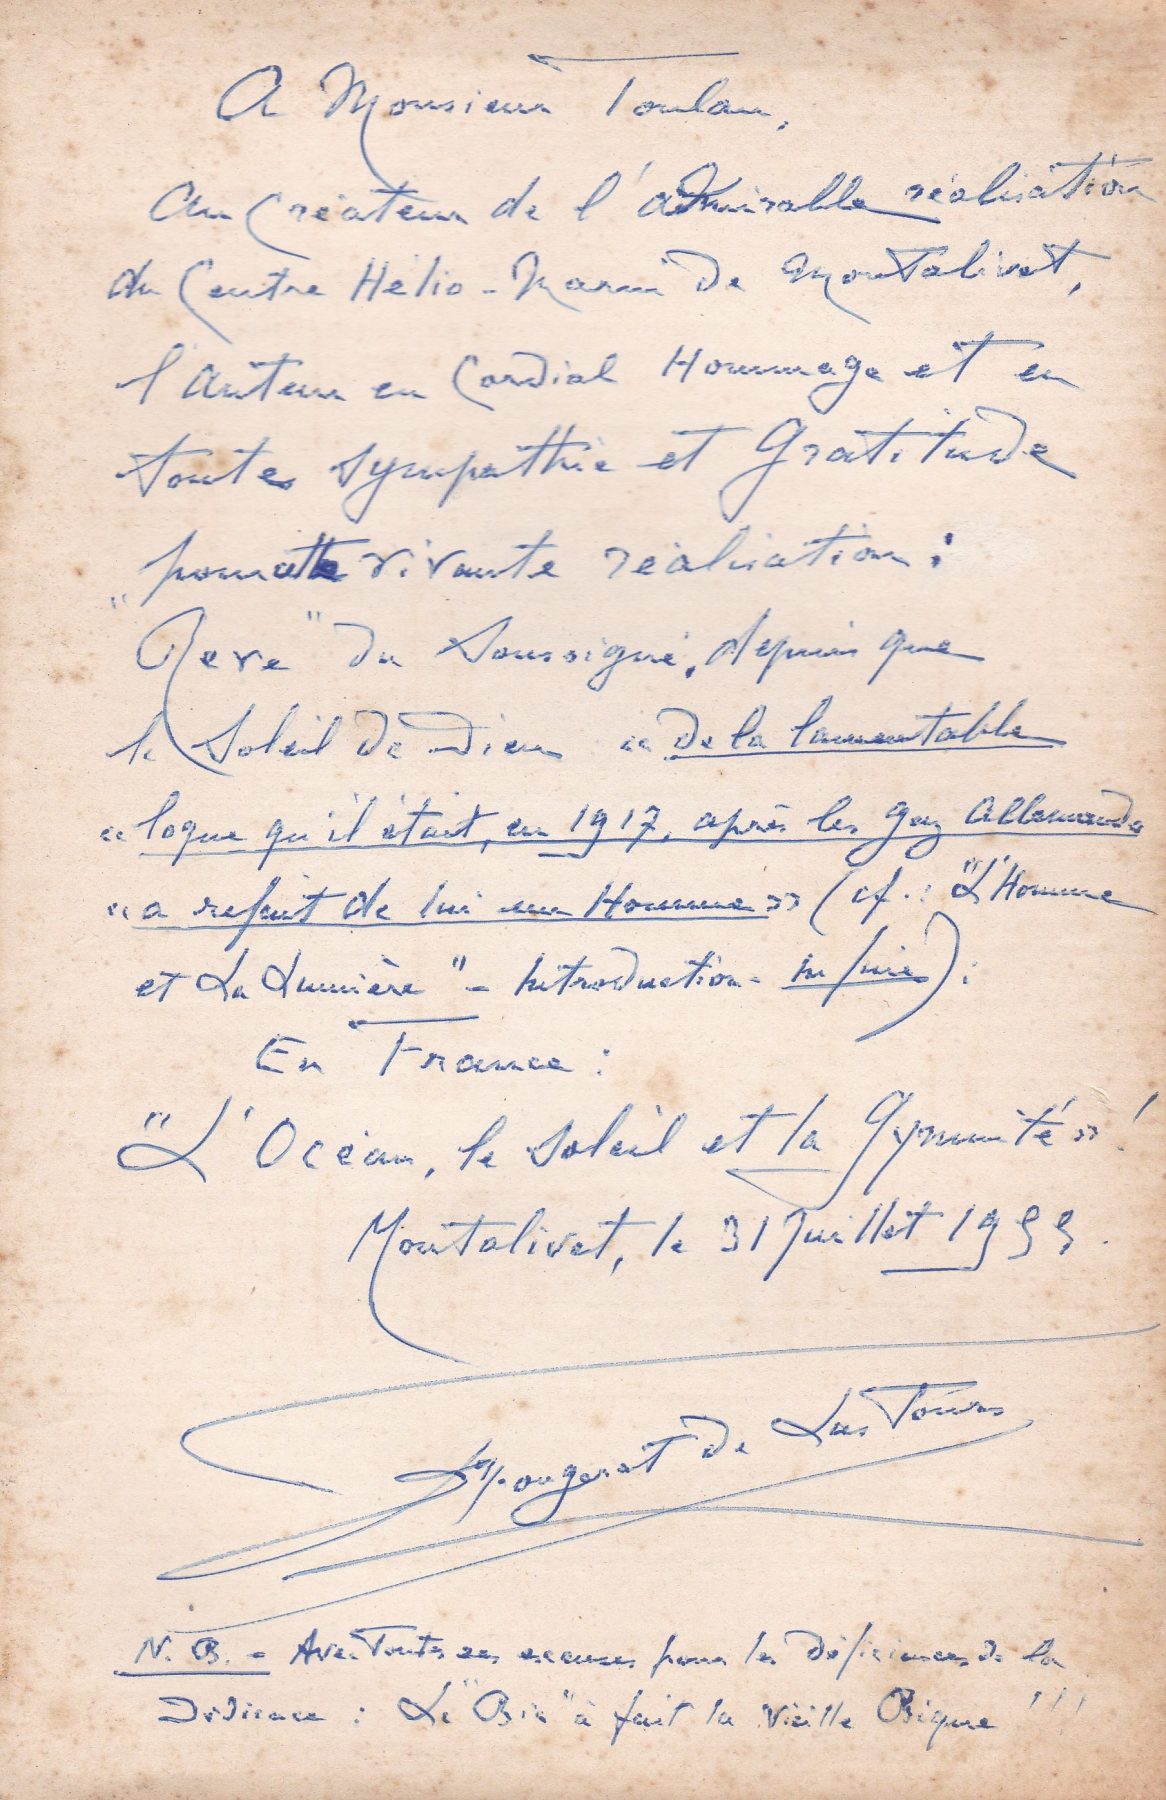 A Monsieur Toulau,
au Créateur de l'admirable réalisation
du Centre Hélio-Marin de Montalivet,
l'auteur en Cordial Hommage et en
toutes Sympathie et Gratitude
pour cette vivante réalisation :
"Reve" du Soussigné, depuis que
le Soleil de Dieu « de la lamentable
« loque qu'il était, en 1917, après les gaz Allemands
« a refait de lui un Homme » (cf. : "L'Homme
et La Lumière" - Introduction - in fine) :
En France :
"L'Océan, le Soleil et la Gymnité» !
Montalivet, le 31 Juillet 1955.
Fougerat de Las Tours
N.B. - Avec Toutes ses excuses pour les déficiences de la
Dédicace : Le "Bic" à fait la Vieille Bique !!!